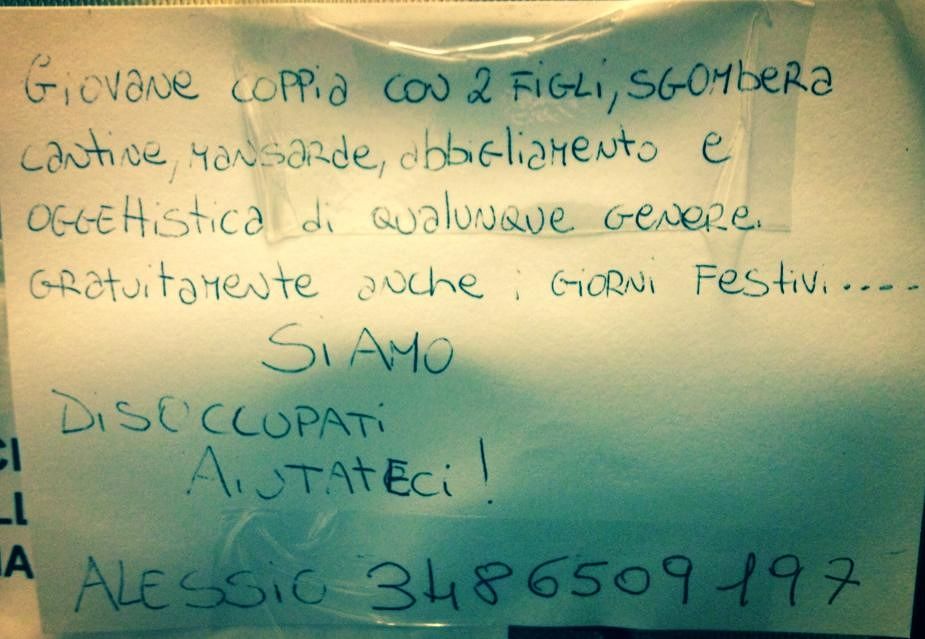 Giovane coppia con 2 figli, sgombera
cantine, mansarde, abbigliamento e
oggettistica di qualunque genere.
Gratuitamente anche i giorni festivi.....
SiAMO
DiSOCCUPATi
AiUTATECi!
ALESSiO 3486509197
CI
LL
IA